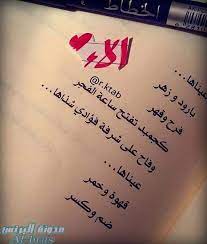 الخطاط
لا لاء
@r.ktab
عيناها...
بارود و زهر
فرح وقهر
كجميلة تفتح ساعة الفجر
وفاح على شرفة فؤادي شذاها...
عيناها...
قهوة وخمر
ضم وكسر
مدونة البرنس